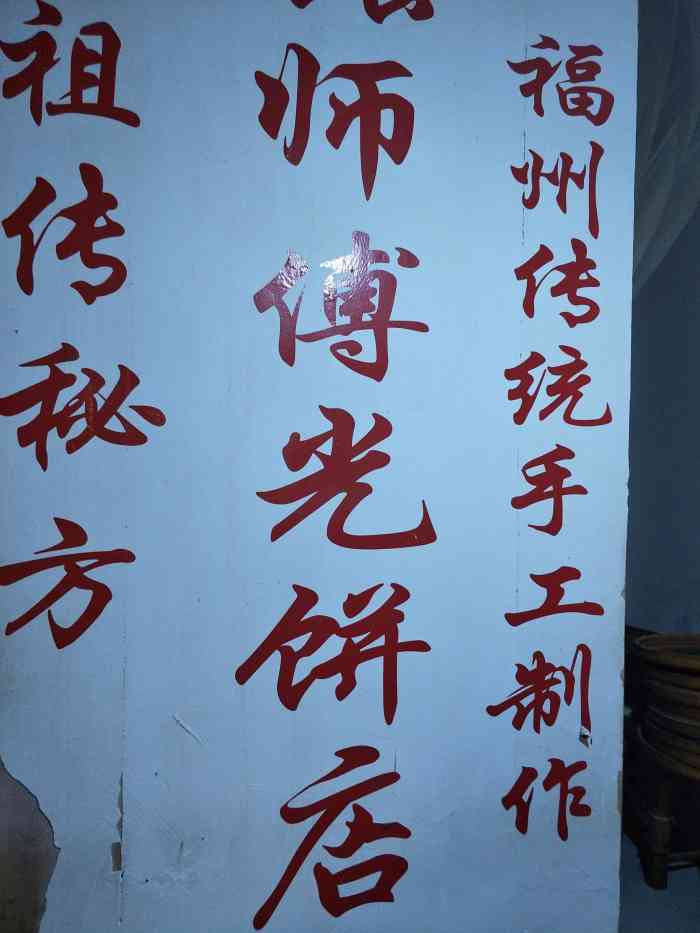 福州传统手工制作
师傅光饼店
祖传秘方